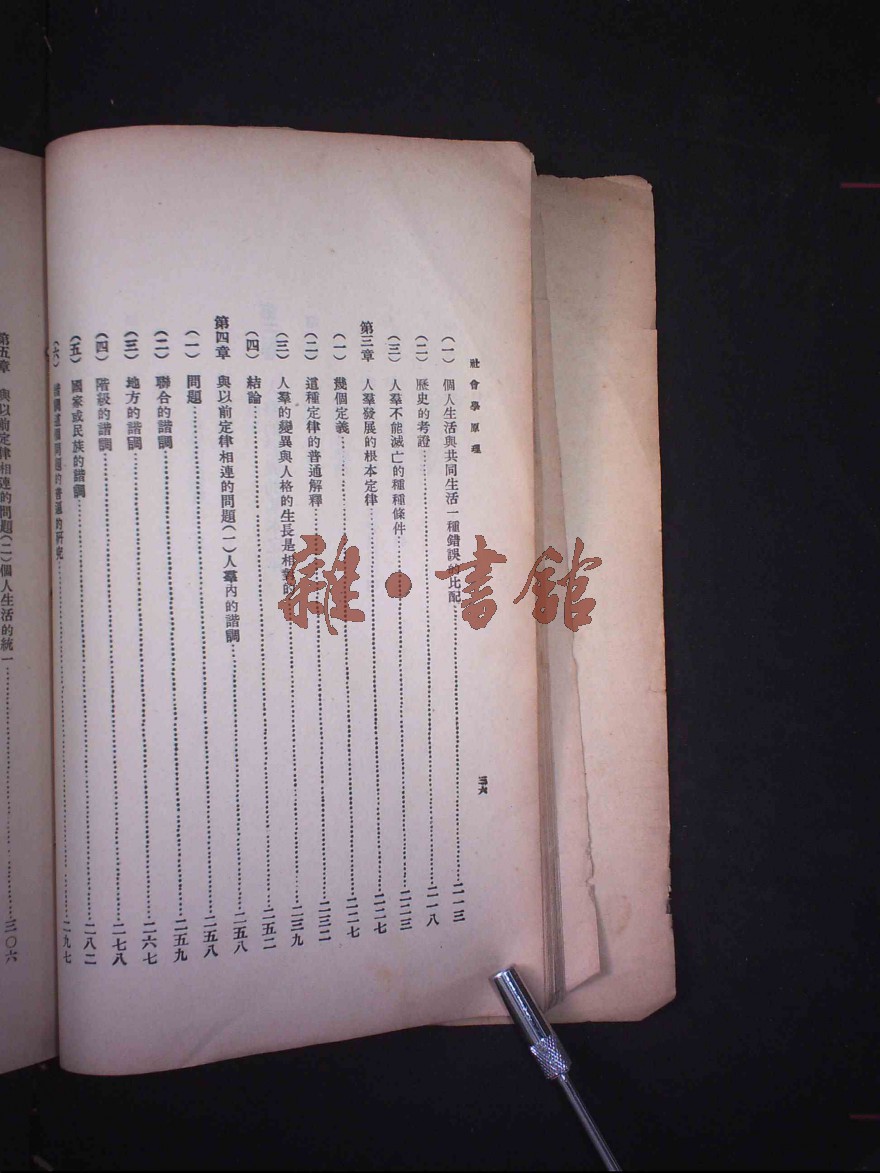 社會學原理
（一） 個人生活與共同生活一種錯誤的比配……二一三
（二） 歷史的考證……二一八
（三） 人羣不能滅亡的種種條件……二二三
第三章 人羣發展的根本定律……二二七
（一） 幾個定義……二二七
（二） 這種定律的普通解釋……二三二
（三） 人羣的變異與人格的生長是相對的……二三九
（四） 結論……二五二
第四章 與以前定律相連的問題（一）人羣內的諧調……二五八
（一） 問題……二五八
（二） 聯合的諧調……二五九
（三） 地方的諧調……二六七
（四） 階級的諧調……二七八
（五） 國家或民族的諧調……二八二
（六） 諧調這個問題的普通的研究……二九七
第五章 與以前定律相連的問題（二）個人生活的統一……三〇六
雜·書館